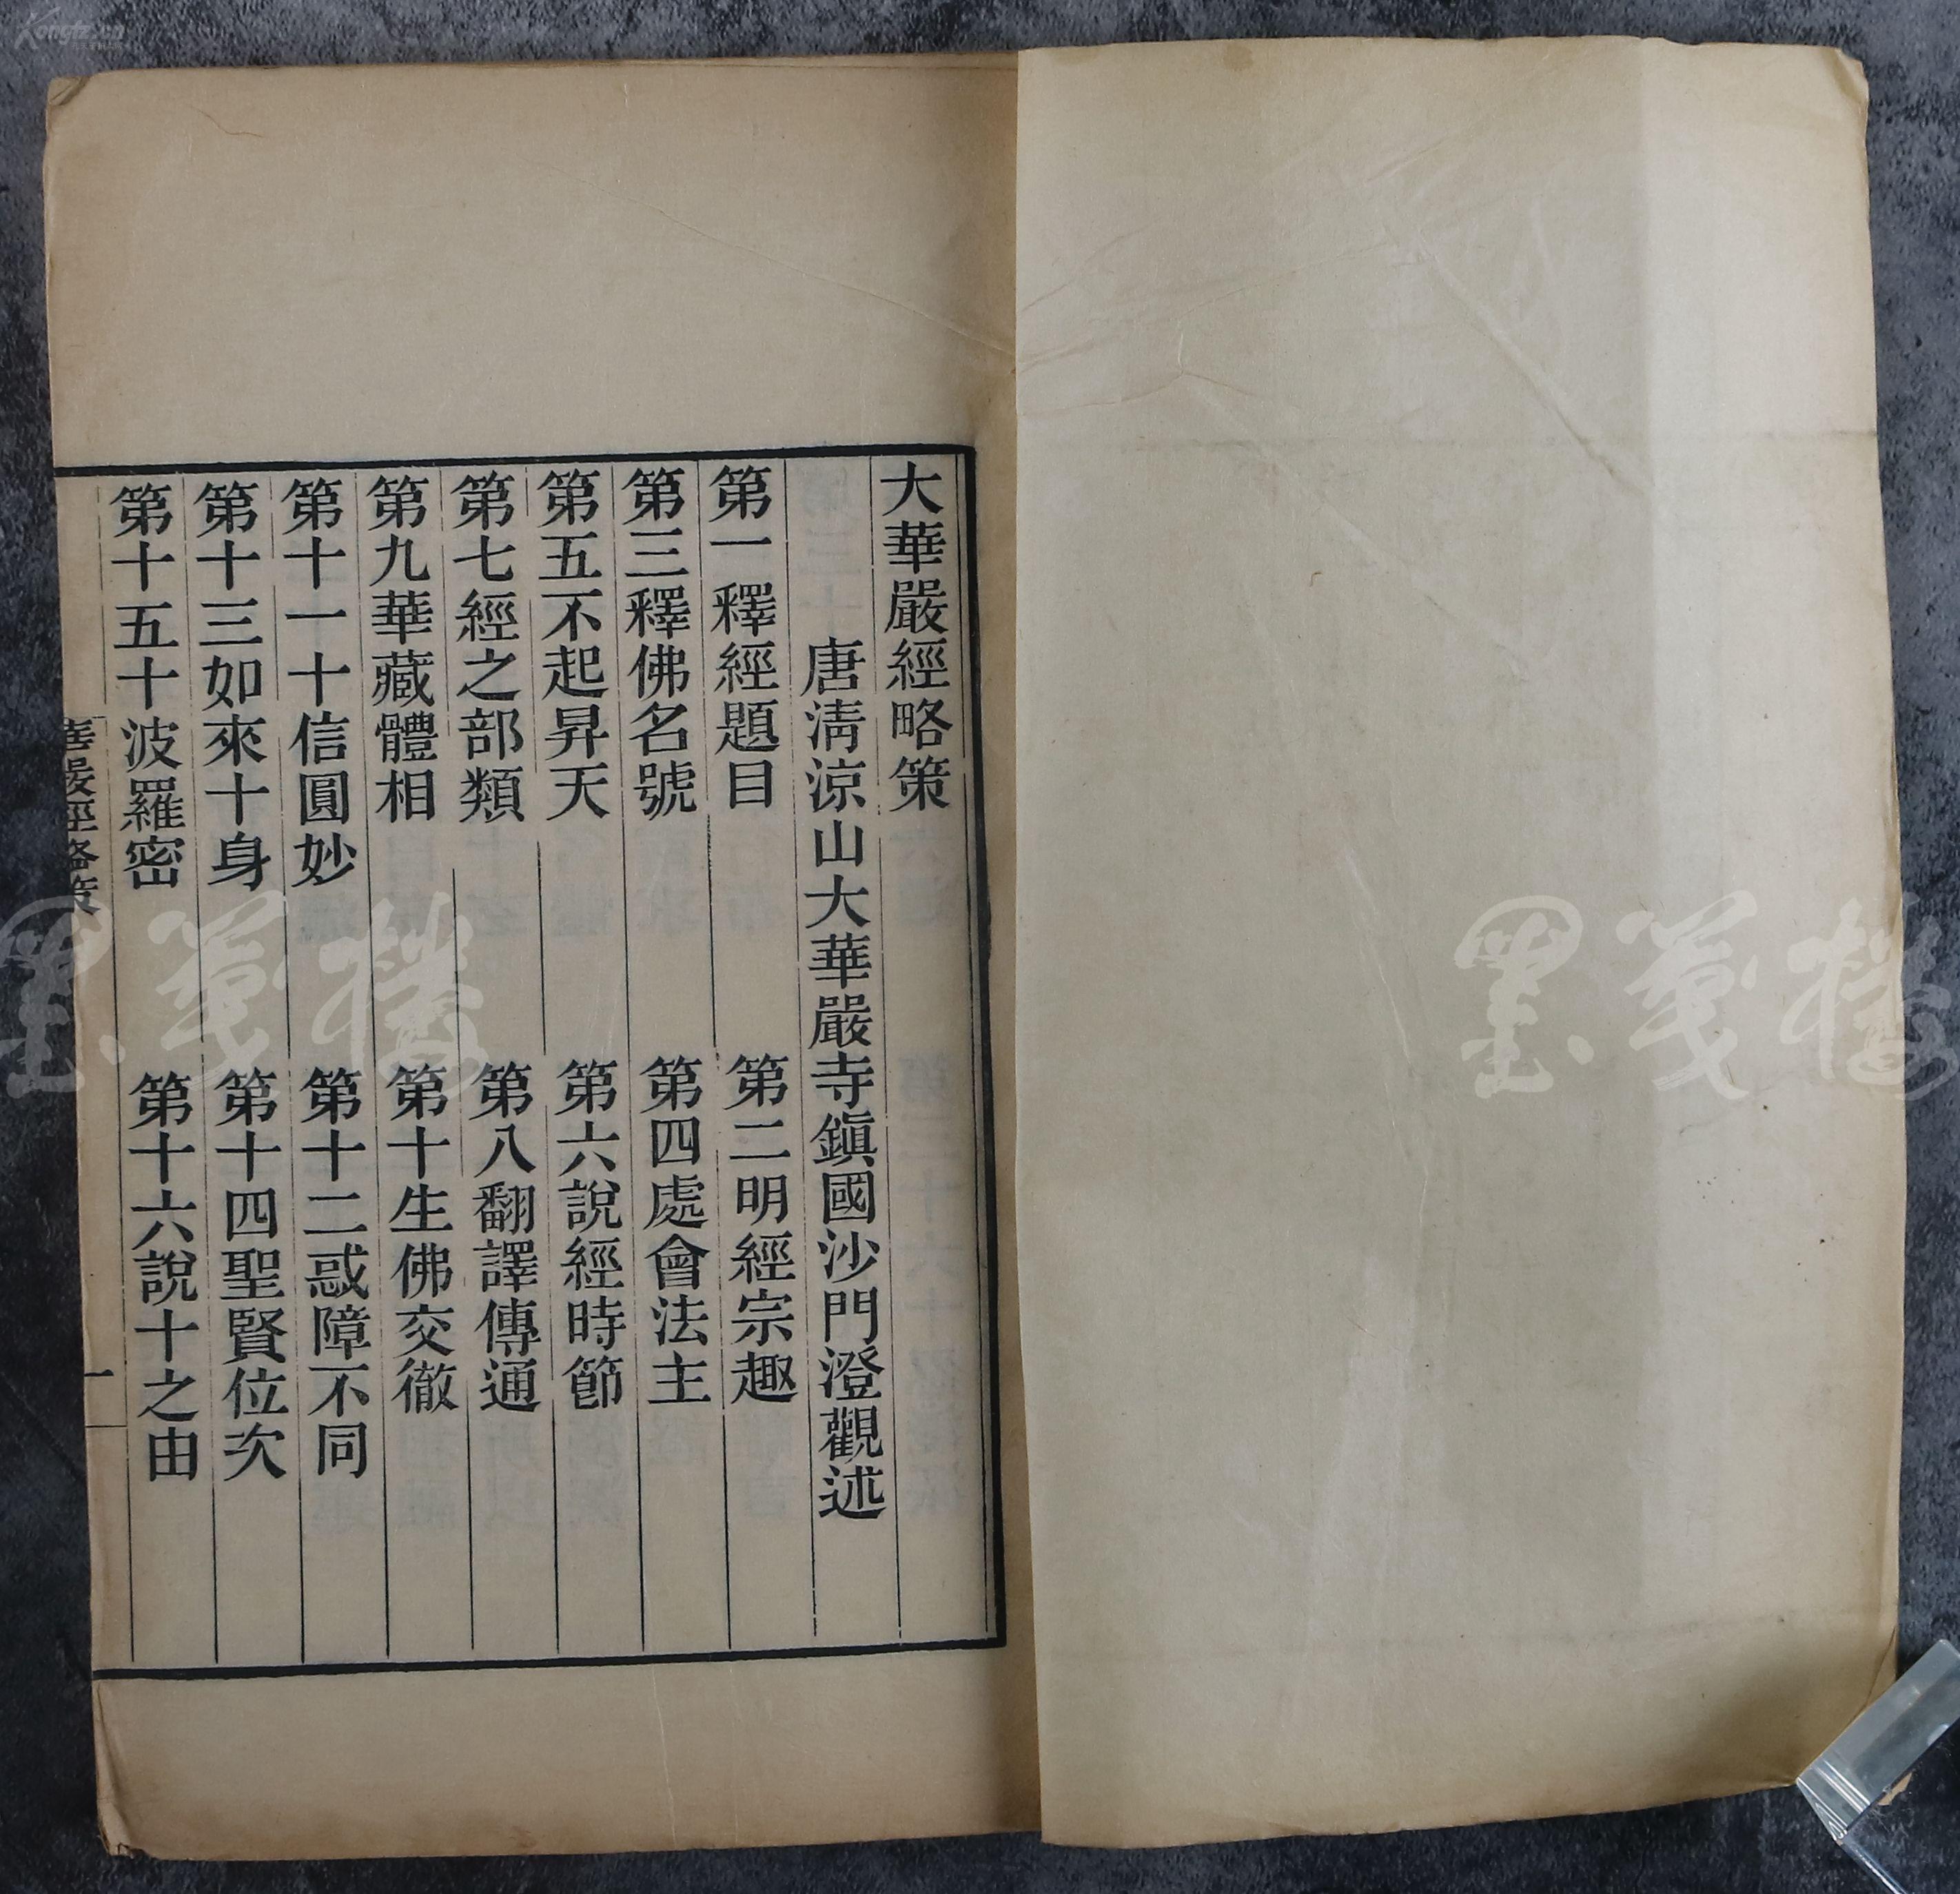 大華嚴經略策
唐淸涼山大華嚴寺鎭國沙門澄觀述
第一釋經題目　第二明經宗趣
第三釋佛名號　第四處會法主
第五不起昇天　第六說經時節
第七經之部類　第八翻譯傳通
第九華藏體相　第十生佛交徹
第十一十信圓妙　第十二惑障不同
第十三如來十身　第十四聖賢位次
第十五十波羅密　第十六說十之由
華嚴經略策
一
墨箋樓
墨箋樓
Kongfz.cn